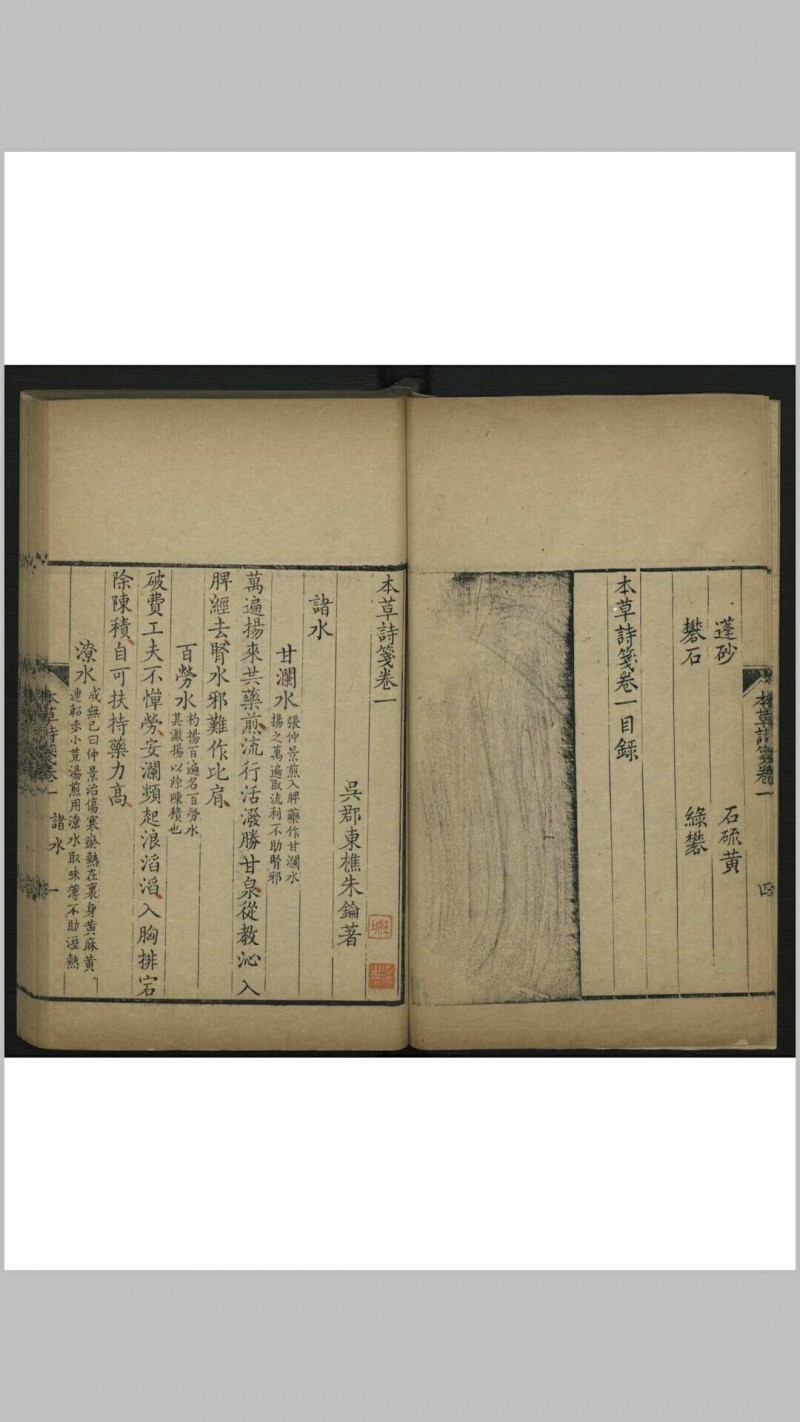 蓬砂 石硫黃
礬石 綠礬
本草詩箋卷一目錄
本草詩箋卷一 四
本草詩箋卷一
吳郡東樵朱鑰著
諸水
甘瀾水 張仲景煎入脾藥作甘瀾水
揚之萬遍取流利不助腎邪
萬遍揚來共藥煎流行活潑勝甘泉從教沁入
脾經去腎水邪難作比肩
百勞水 杓揚百遍名百勞水
其激揚以除陳積也
破費工夫不憚勞安瀾頻起浪滔滔入胸排宕
除陳積自可扶持藥力高
潦水 成無己曰仲景治傷寒瘀熱在裏身黃麻黃
連軺赤小荳湯煎用潦水取味薄不助溼熱
本草詩箋卷一 諸水 一